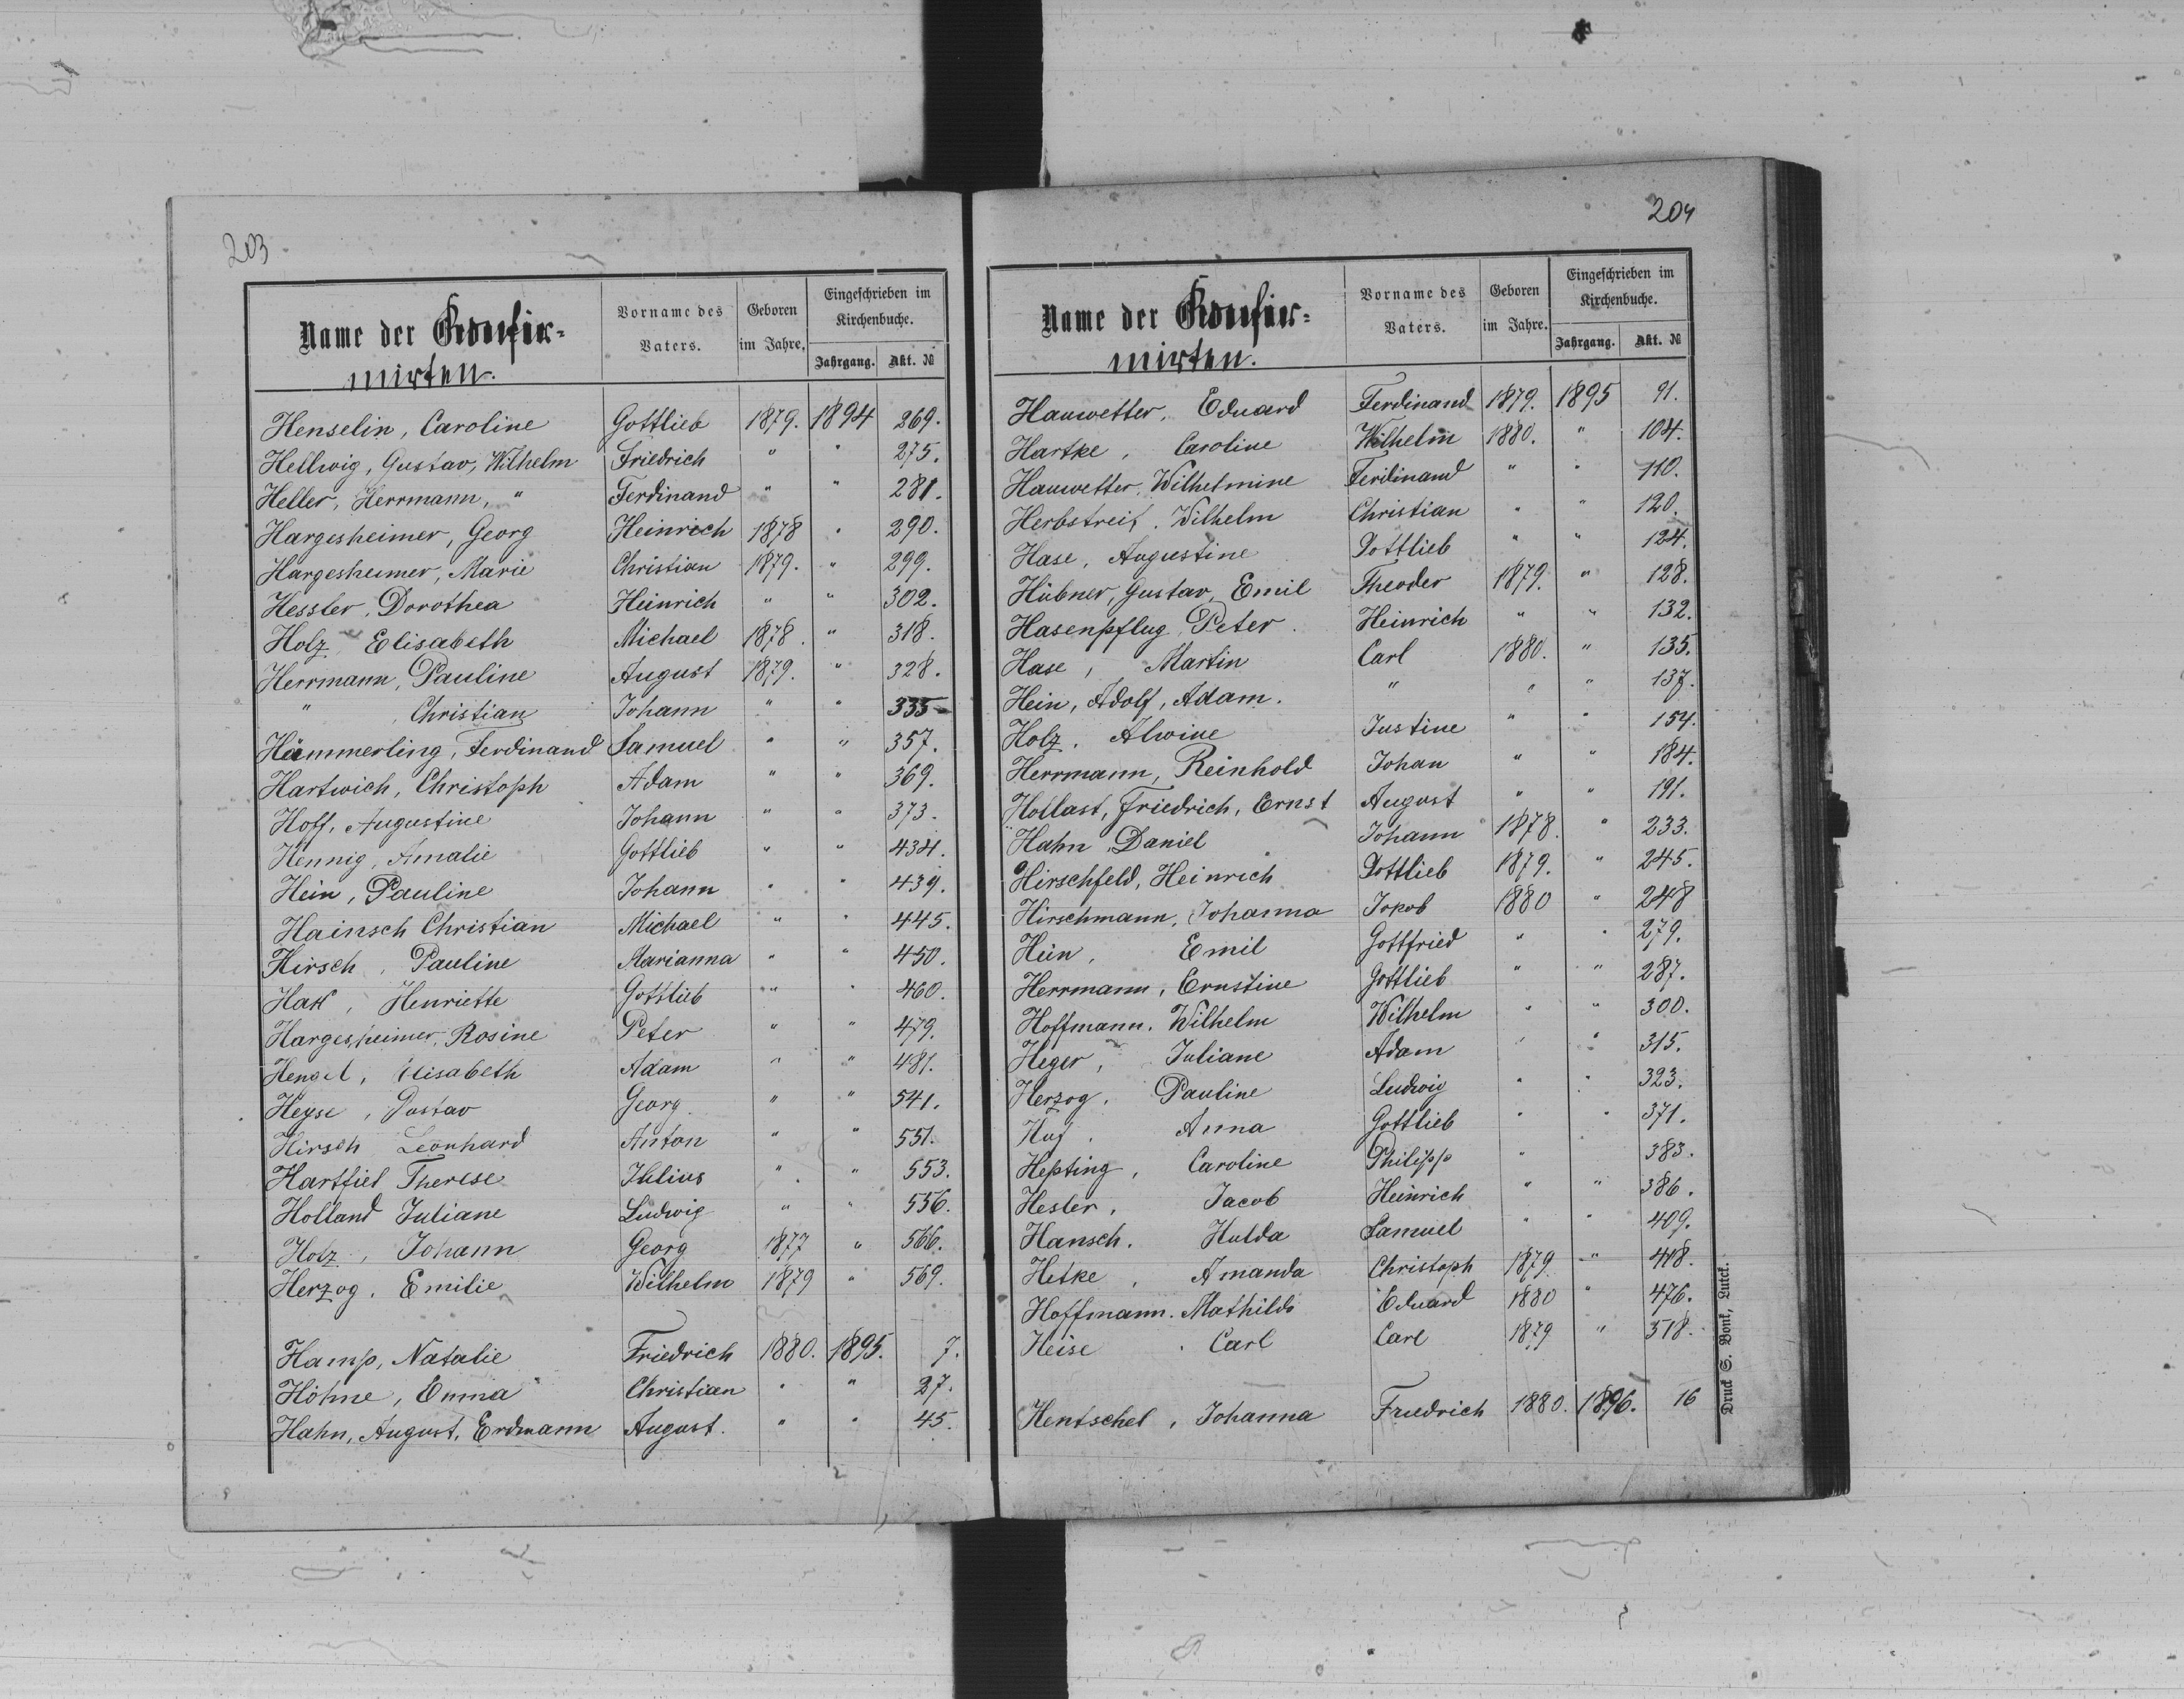 203
Name der Konfir-
mirten.
Vorname des
Vaters.
Geboren
im Jahre.
Eingeschrieben im
Kirchenbuche.
Jahrgang. Akt. №
Henselin, Caroline Gottlieb 1879. 1894 269.
Hellwig, Gustav, Wilhelm Friedrich " " 275.
Heller, Herrmann, " Ferdinand " " 281.
Hargesheimer, Georg Heinrich 1878 " 290.
Hargesheimer, Marie Christian 1879. " 299.
Hessler, Dorothea Heinrich " " 302.
Holz Elisabeth Michael 1878. " 318.
Herrmann, Pauline August 1879. " 328.
" , Christian Johann " " 335
Hämmerling, Ferdinand Samuel " " 357.
Hartwich, Christoph Adam " " 369.
Hoff, Augustine Johann " " 373.
Hennig, Amalie Gottlieb " " 434.
Hein, Pauline Johann " " 439.
Hainsch Christian Michael " " 445.
Hirsch, Pauline Marianna " " 450.
Henriette Gottlieb " " 460.
Hargesheimer, Rosine Peter " " 479.
Hengel, Elisabeth Adam " " 481.
Heyse, Gustav Georg " " 541.
Hirsch Leonhard Anton " " 551.
Hartfiel Therese Julius " " 553.
Holland Juliane Ludwig " " 556.
Holz, Johann Georg 1877 " 566.
Herzog, Emilie Wilhelm 1879 " 569.
Hamp, Natalie Friedrich 1880. 1895. 7.
Höhne, Emma Christian " " 27.
Hahn, August, Erdmann August. " " 45.
204
Name der Konfir-
mirten.
Vorname des
Vaters.
Geboren
im Jahre.
Eingeschrieben im
Kirchenbuche.
Jahrgang. Akt. №
Hauwetter, Eduard Ferdinand 1879. 1895 91.
Hartke, Caroline Wilhelm 1880. " 104.
Hauwetter, Wilhelmine Ferdinand " " 110.
Herbstreit, Wilhelm Christian " " 120.
Hase, Augustine Gottlieb " " 124.
Hübner, Gustav, Emil Theodor 1879. " 128.
Hasenpflug, Peter Heinrich " " 132.
Hase, Martin Carl 1880. " 135.
Hein, Adolf, Adam. " " " 137.
Holz, Alwine Justine " " 154.
Herrmann, Reinhold Johan " " 184.
Hollast, Friedrich, Ernst August " " 191.
Hahn, Daniel Johann 1878. " 233.
Hirschfeld, Heinrich Gottlieb 1879. " 245.
Hirschmann, Johanna Jokob 1880 " 248
Hein, Emil Gottfried " " 279.
Herrmann, Ernstine Gottlieb " " 287.
Hoffmann, Wilhelm Wilhelm " " 300.
Heger, Juliane Adam " " 315.
Herzog, Pauline Ludwig " " 323.
Huf, Anna Gottlieb " " 371.
Hepting, Caroline Philipp " " 383.
Hesler, Jacob Heinrich " " 386.
Hansch, Hulda Samuel " " 409.
Hetke, Amanda Christoph 1879. " 418.
Hoffmann, Mathilde Eduard 1880 " 476.
Heise, Carl Carl 1879 " 518.
Hentschel, Johanna Friedrich 1880. 1896. 16
Druck S. Bonk, Lutck.